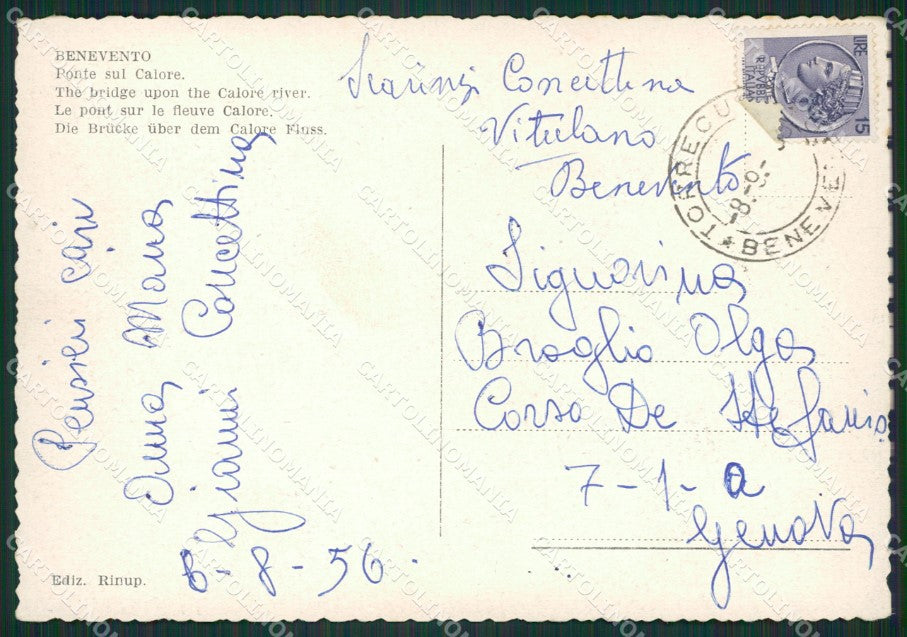 BENEVENTO
Ponte sul Calore.
The bridge upon the Calore river.
Le pont sur le fleuve Calore.
Die Brücke über dem Calore Fluss.
Concettina
Vitulano
Benevento
LIRE 15
REPVBBLICA ITALIANA
TORRECU
BENEVE
Signorina
Broglio Olga
Corso De Stefanis
7-1-a
Genova
Pensieri cari
Anna Maria
Gianni Concettina
8-56
Ediz. Rinup.
CARTOLINOMANIA